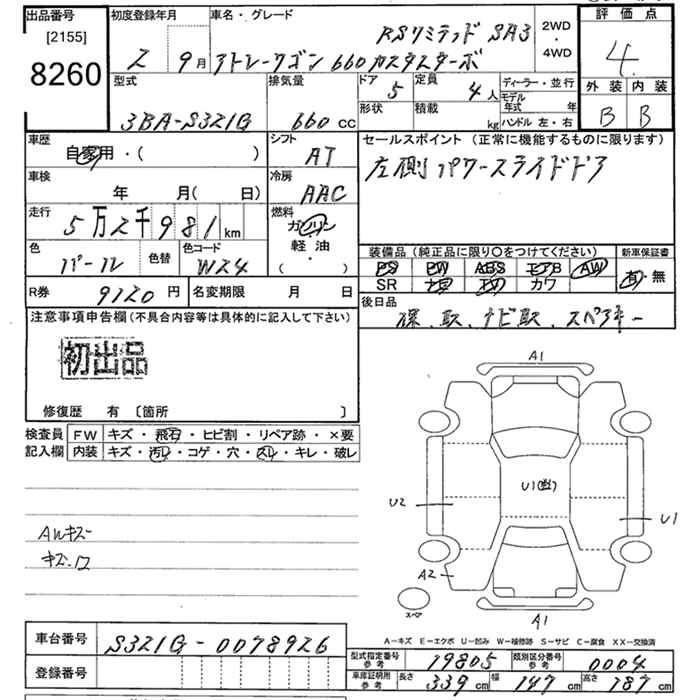 出品番号
[2155]
8260
初度登録年月
2 9月
車名・グレード
RSリミテッド SA3
アトレーワゴン 660 カスタムターボ
2WD
・
4WD
評価点
4
外装 内装
B B
型式
3BA-S321G
排気量
660 CC
ドア
5
定員
4人
形状
積載
kg
ディーラー・並行
モデル
年式 年
ハンドル 左・右
車歴
自家用・( )
シフト
AT
車検
年 月( 日)
冷房
AAC
走行
5万2千981km
燃料
ガソリン
軽油
( )
色
パール
色替
色コード
W24
R券
9120円
名変期限 月 日
セールスポイント (正常に機能するものに限ります)
左側パワースライドドア
装備品 (純正品に限り○をつけてください)
新車保証書
PS PW ABS エアB AW
SR ナビ TV カワ
有・無
後日品
保、取、ナビ取、スペアキー
注意事項申告欄 (不具合内容等は具体的に記入して下さい)
初出品
修復歴 有 〔箇所 〕
検査員
記入欄
FW キズ・飛石・ヒビ割・リペア跡・×要
内装 キズ・汚レ・コゲ・穴・スレ・キレ・破レ
AWキズ
キズ・ワ
A1
U1
U2
U1
A2
スペア
A1
A-キズ E-エクボ U-凹み W-補修跡 S-サビ C-腐食 XX-交換済
車台番号
S321G-0078926
登録番号
型式指定番号
参考
19805
類別区分番号
参考
0004
車庫証明用
参考
長さ 339cm 幅 147cm 高さ 187cm